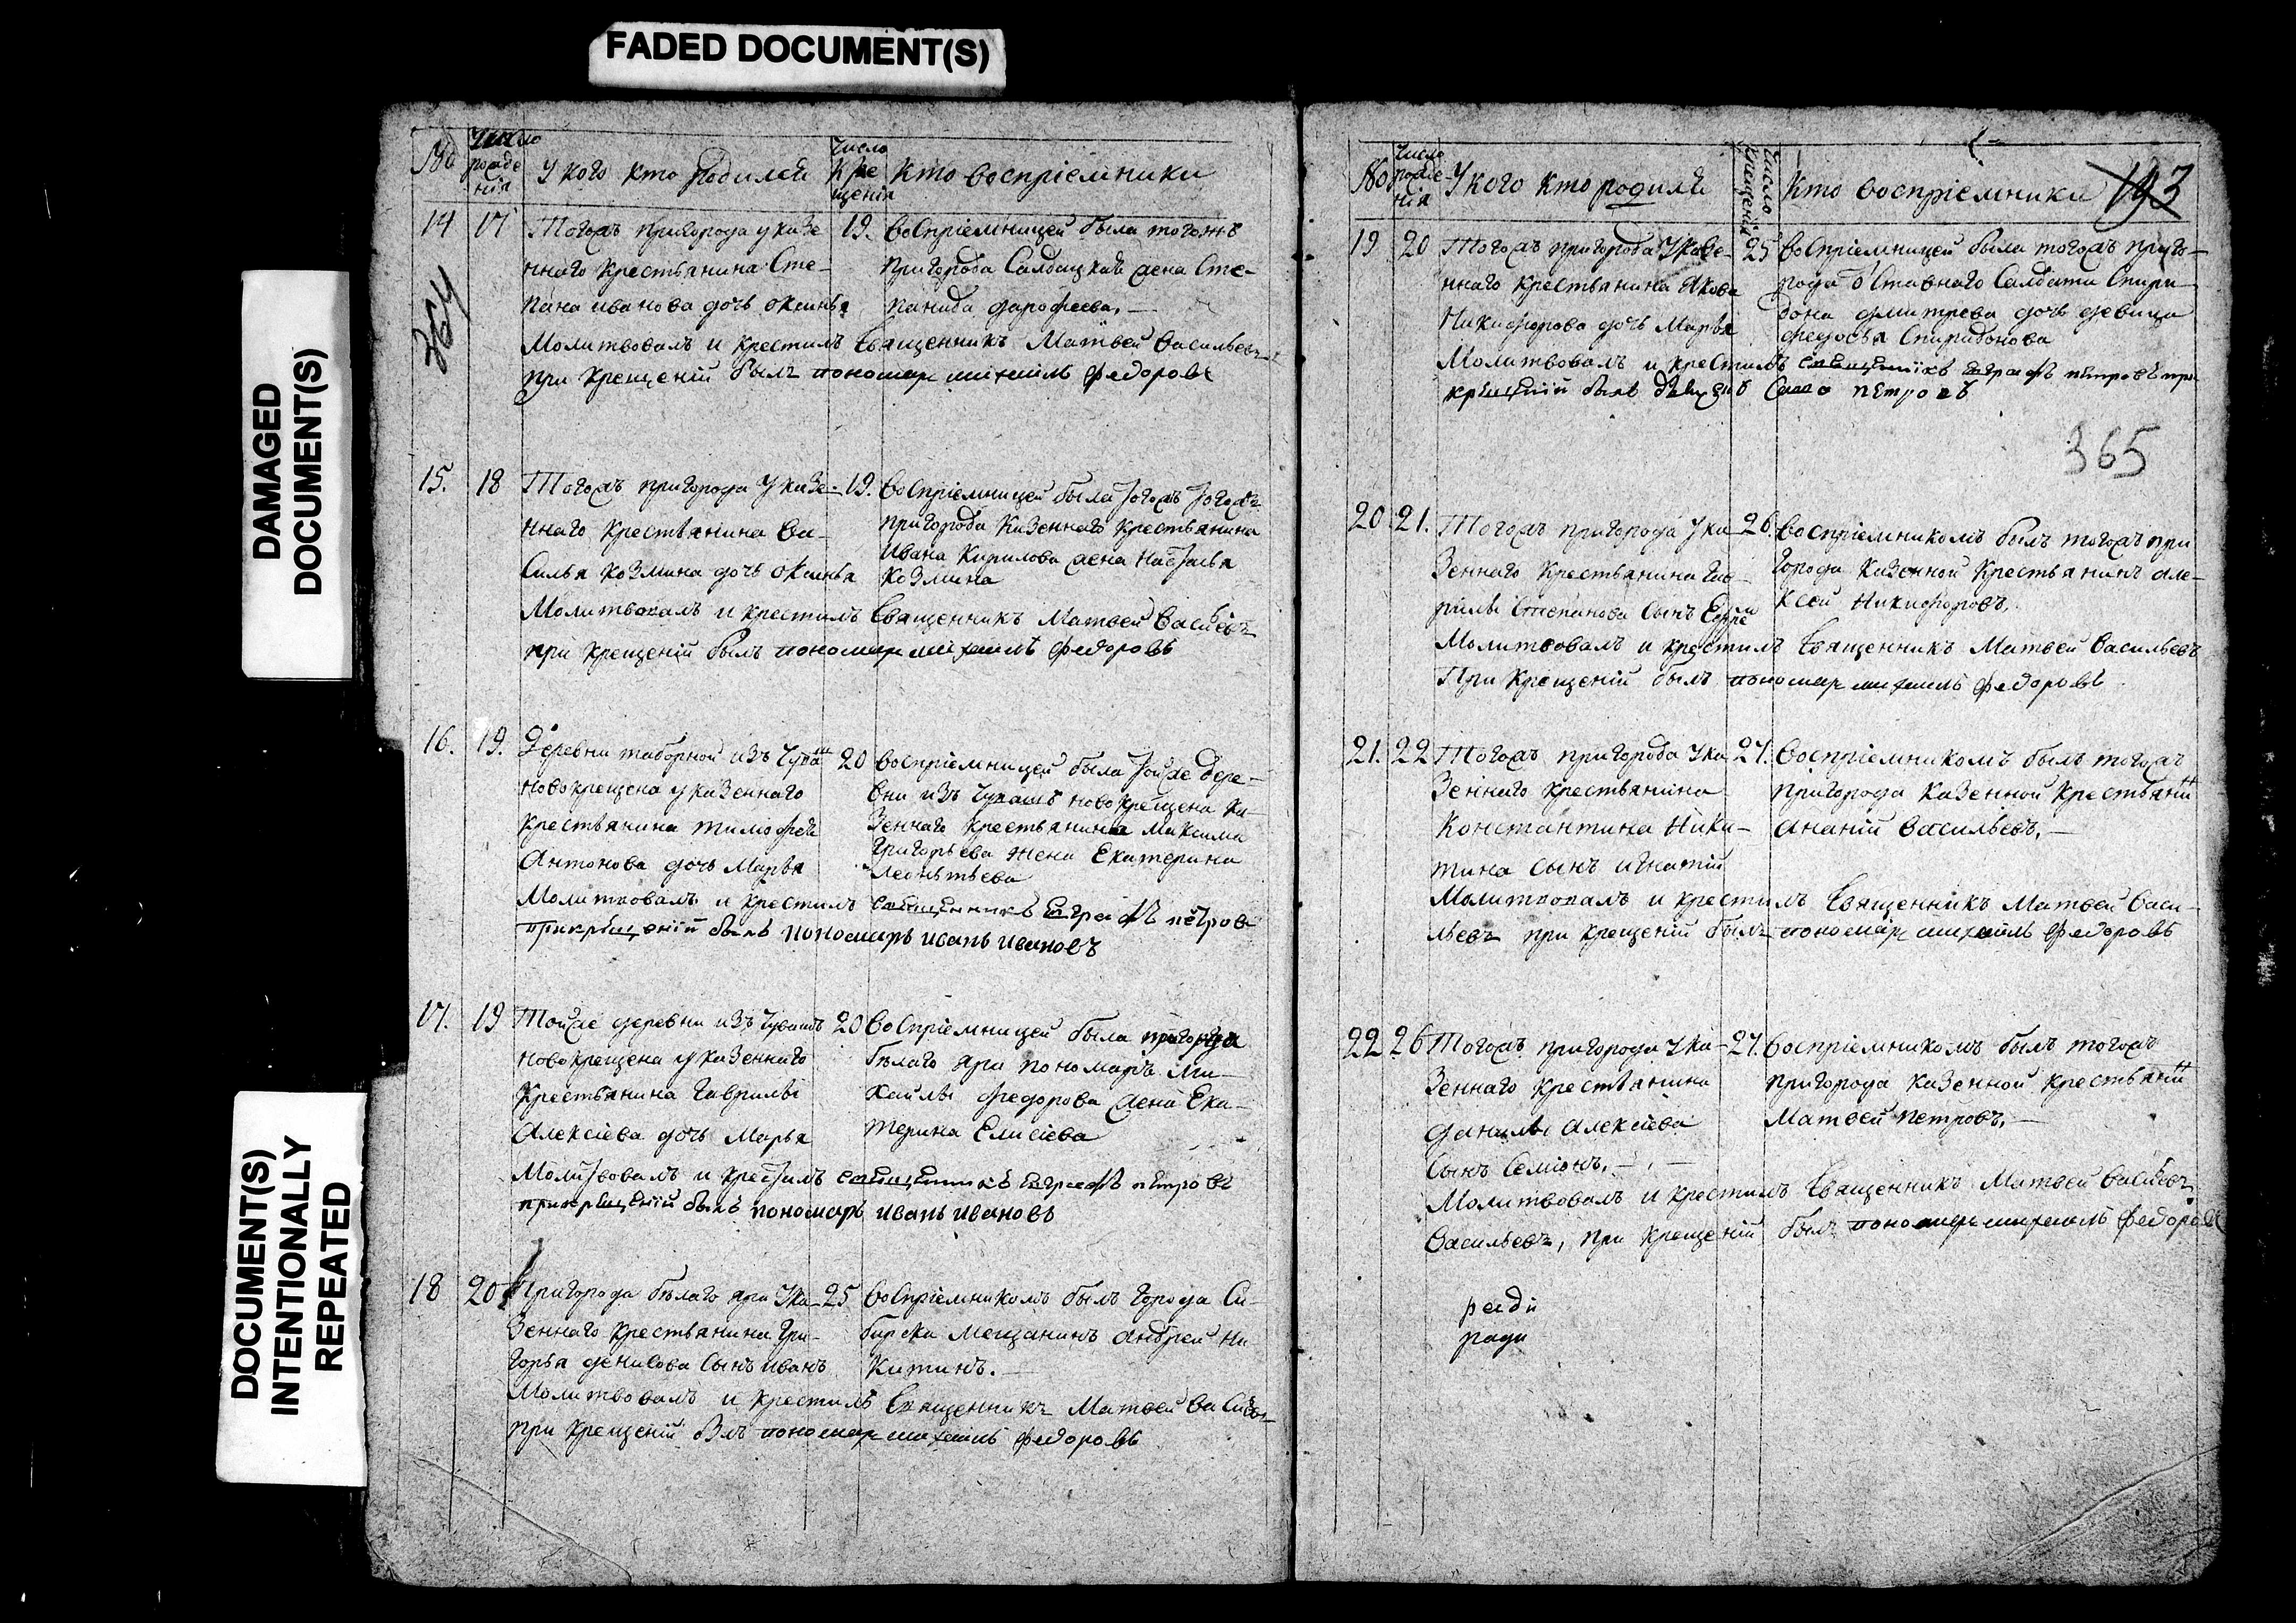 FADED DOCUMENT(S)
DAMAGED
DOCUMENT(S)
DOCUMENT(S)
INTENTIONALLY
REPEATED
№ Число рожденія У кого кто родился Число крещенія Кто воспріемники
364
14 17 Тогожъ пригорода у казе-
ннаго крестьянина Сте-
пана иванова дочь оксинья
19. воспріемницей была тогожъ
пригорода Салдацкая жена Сте-
панида дарофеева.
Молитвовалъ и крестилъ Священникъ Матвей Васильевъ
при крещеній былъ пономар михаилъ федоровъ
15. 18 Тогожъ пригорода у казе-
ннаго крестьянина Ва-
силья козмина дочь оксинья
19. воспріемницей была тогожъ тогожъ
пригорода казеннаго крестьянина
ивана Кирилова жена Настасья
козмина
Молитвовалъ и крестилъ Священникъ Матвей Васильевъ
при крещеній былъ пономар михаилъ федоровъ
16. 19. Деревни таборной изъ Чувашъ
новокрещена у казеннаго
крестьянина тимофея
Антонова дочь Марья
20 воспріемницей была тойже дере-
вни изъ чувашъ новокрещена ка-
зеннаго крестьянина Максима
Григорьева жена Екатерина
Леонтьева
Молитвовалъ и крестилъ священникъ Евграфъ петровъ
прикрещеній былъ пономарь иванъ ивановъ
17. 19 Тойже деревни изъ чувашъ
новокрещена у казеннаго
Крестьянина Гаврилы
Алексіева дочь Марья
20 воспріемницей была пригорда
бѣлаго яра пономаря Ми-
хайлы федорова жена Ека-
терина Елисіева
Молитвовалъ и крестилъ священникъ Евграфъ петровъ
прикрещеній былъ пономарь иванъ ивановъ
18 20 Пригорода бѣлаго яра у ка-
зеннаго крестьянина Гри-
горья денисова сынъ иванъ
25 воспріемникомъ былъ города Си-
бирска мещанинъ андрей ни-
китинъ.
Молитвовалъ и крестилъ Священникъ Матвей
при крещеній былъ пономар михаилъ федоровъ
№ Число рожденія У кого кто родился Число крещенія Кто воспріемники
193
19 20 Тогожъ пригорода у казе-
ннаго крестьянина Якова
Никифорова дочь Марья
25 воспріемницей была тогожъ приго-
рода отставнаго Салдата Спири-
дона дмитрева дочь девица
федосья Спиридонова
Молитвовалъ и крестилъ священникъ Евграфъ петровъ при
крещеній былъ петровъ
365
20. 21. Тогожъ пригорода у ка-
зеннаго крестьянина Гав-
рилы Степанова сынъ
26. воспріемникомъ былъ тогожъ при
города казенной крестьянинъ але-
ксей никифоровъ.
Молитвовалъ и крестилъ Священникъ Матвей Васильевъ
При крещеній былъ пономар михаилъ федоровъ
21. 22 Тогожъ пригорода у ка
зеннаго крестьянина
Константина Ники-
тина сынъ игнатій
27. воспріемникомъ былъ тогожъ
пригорода казенной крестьянинъ
ананій Васильевъ.
Молитвовалъ и крестилъ Священникъ Матвей Васи-
льевъ при крещеній былъ пономар михаилъ федоровъ
22 26 Тогожъ пригорода у ка-
зеннаго крестьянина
данилы алексіева
Сынъ Семіонъ.
27. воспріемникомъ былъ тогожъ
пригорода казенной крестьянинъ
Матвей петровъ.
Молитвовалъ и крестилъ Священникъ Матвей Васильевъ
Васильевъ, при крещеній былъ пономар михаилъ федоровъ
ради
ради